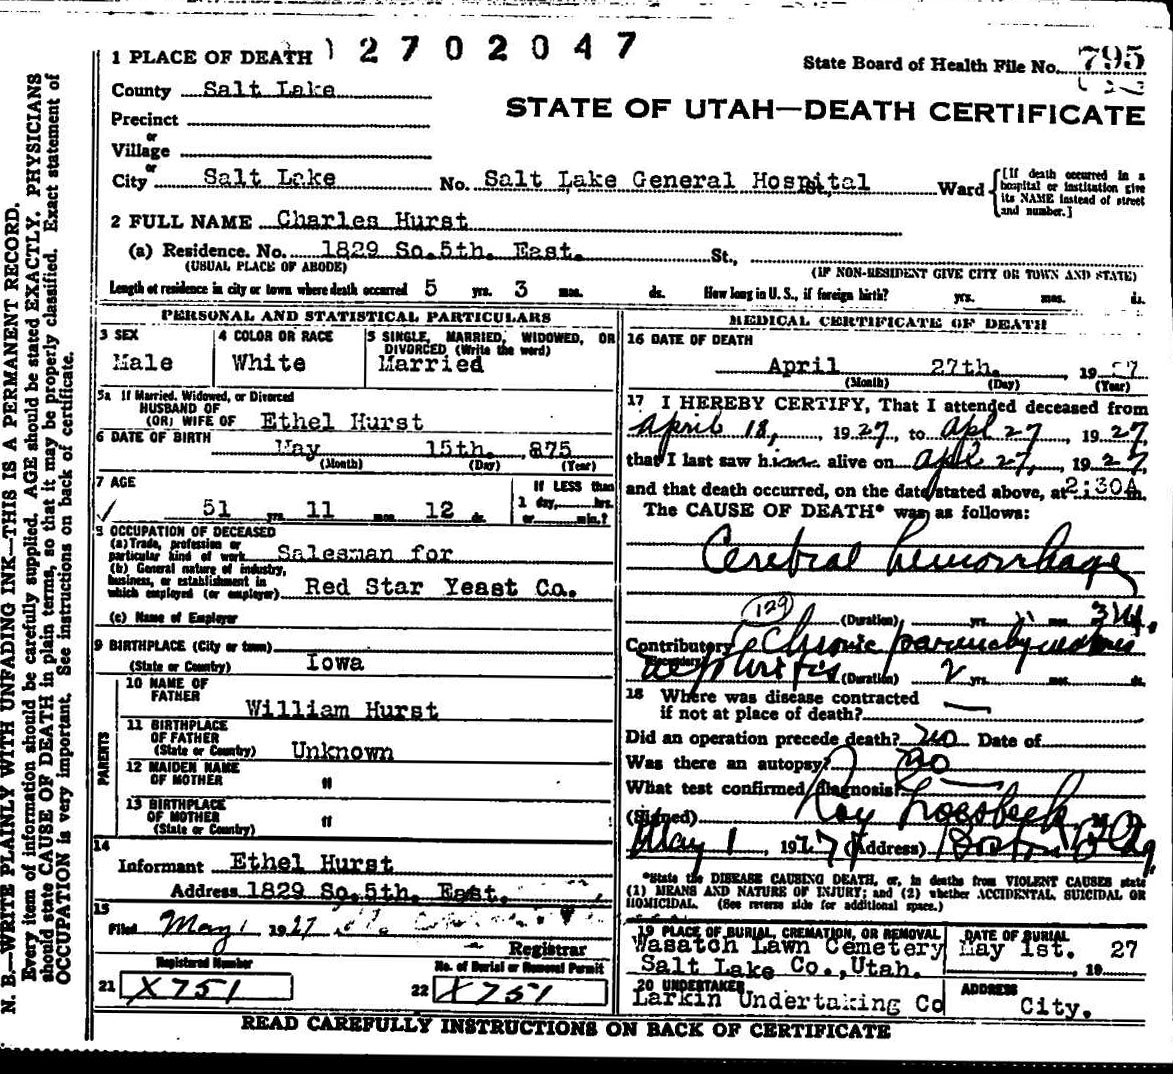 1 2 7 0 2 0 4 7
1 PLACE OF DEATH
State Board of Health File No. 795
County Salt Lake
STATE OF UTAH—DEATH CERTIFICATE
Precinct
or
Village
or
City Salt Lake No. Salt Lake General Hospital St., Ward
[If death occurred in a hospital or institution give its NAME instead of street and number.]
2 FULL NAME Charles Hurst
(a) Residence. No. 1829 So.5th. East. St.,
(USUAL PLACE OF ABODE) (IF NON-RESIDENT GIVE CITY OR TOWN AND STATE)
Length of residence in city or town where death occurred 5 yrs. 3 mos. ds. How long in U. S., if foreign birth? yrs. mos. ds.
PERSONAL AND STATISTICAL PARTICULARS
3 SEX
Male
4 COLOR OR RACE
White
5 SINGLE, MARRIED, WIDOWED, OR
DIVORCED (Write the word)
Married
5a If Married, Widowed, or Divorced
HUSBAND OF
(OR) WIFE OF Ethel Hurst
6 DATE OF BIRTH
May 15th. 875
(Month) (Day) (Year)
7 AGE
51 yrs. 11 mos. 12 ds.
If LESS than
1 day, hrs.
or min.?
8 OCCUPATION OF DECEASED
(a) Trade, profession or
particular kind of work Salesman for
(b) General nature of industry,
business, or establishment in
which employed (or employer) Red Star Yeast Co.
(c) Name of Employer
9 BIRTHPLACE (City or town)
(State or Country) Iowa
PARENTS
10 NAME OF
FATHER
William Hurst
11 BIRTHPLACE
OF FATHER
(State or Country) Unknown
12 MAIDEN NAME
OF MOTHER "
13 BIRTHPLACE
OF MOTHER
(State or Country) "
14
Informant Ethel Hurst
Address 1829 So.5th. East.
15
Filed May 1 1927
Registrar
Registered Number
21 X751
No. of Burial or Removal Permit
22 X751
MEDICAL CERTIFICATE OF DEATH
16 DATE OF DEATH
April 27th. 19 27
(Month) (Day) (Year)
17 I HEREBY CERTIFY, That I attended deceased from
April 18, 1927, to Apl 27, 1927,
that I last saw him alive on Apl 27, 1927,
and that death occurred, on the date stated above, at 2:30A m.
The CAUSE OF DEATH* was as follows:
Cerebral hemorrhage
(129)
(Duration) yrs. mos.
Contributory Chronic parenchymatous
(Secondary)
nephritis (Duration) 2 yrs. mos. ds.
18 Where was disease contracted
if not at place of death? —
Did an operation precede death? no Date of
Was there an autopsy? no
What test confirmed diagnosis? —
(Signed) Roy M. D.
May 1, 1927 (Address) Boston Bldg
*State the DISEASE CAUSING DEATH, or, in deaths from VIOLENT CAUSES state
(1) MEANS AND NATURE OF INJURY; and (2) whether ACCIDENTAL, SUICIDAL OR
HOMICIDAL. (See reverse side for additional space.)
19 PLACE OF BURIAL, CREMATION, OR REMOVAL
Wasatch Lawn Cemetery
Salt Lake Co.,Utah.
DATE OF BURIAL
May 1st. 27
, 19
20 UNDERTAKER
Larkin Undertaking Co
ADDRESS
City.
READ CAREFULLY INSTRUCTIONS ON BACK OF CERTIFICATE
N. B.—WRITE PLAINLY WITH UNFADING INK—THIS IS A PERMANENT RECORD.
Every item of information should be carefully supplied. AGE should be stated EXACTLY. PHYSICIANS
should state CAUSE OF DEATH in plain terms, so that it may be properly classified. Exact statement of
OCCUPATION is very important. See instructions on back of certificate.